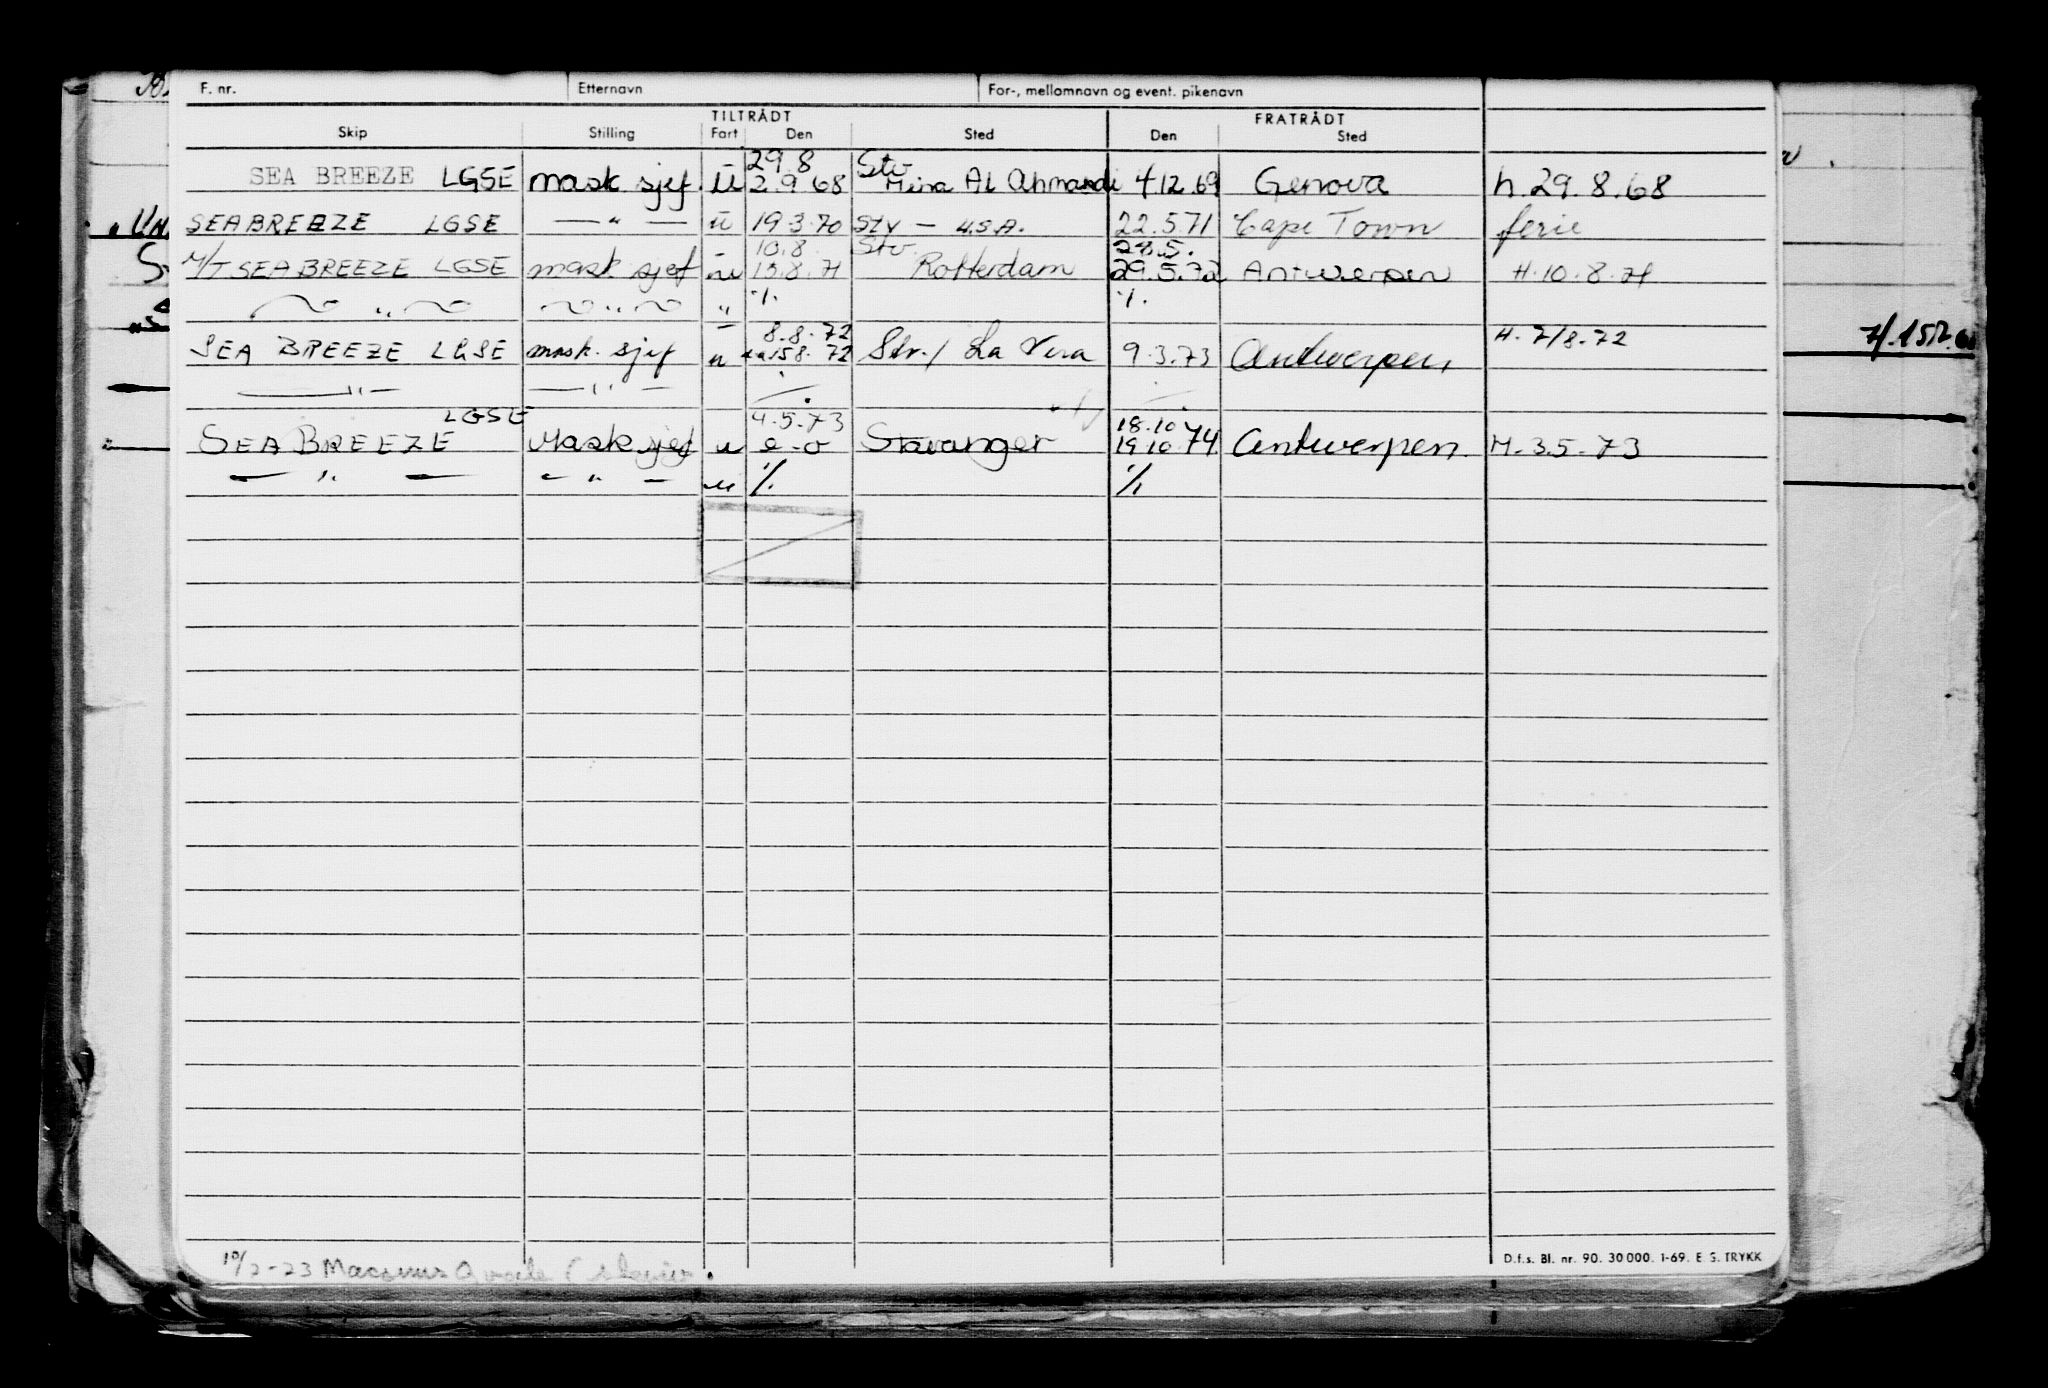 F. nr. Etternavn For-, mellomnavn og event. pikenavn
TILTRÅDT FRATRÅDT
Skip Stilling Fart Den Sted Den Sted
29.8 Stv
SEA BREEZE LGSE mask sjef. u 2.9 68 Mina Al Ahmandi 4 12.69 Genova h. 29.8.68
SEABREEZE LGSE — " — u 19.3.70 Stv — U.S.A. 22.5.71 Cape Town ferie
10.8 Stv 28.5.
M/T SEA BREEZE LGSE mask sjef u 15.8.71 Rotterdam 29.5.72 Antwerpen H.10.8.71
" " " ·/. ·/.
8.8.72 H. 7/8.72
SEA BREEZE LGSE mask. sjef u 15 8. 72 Stv./ La Vera 9.3.73 Antwerpen,
— " — — " —
LGSE 4.5.73 18.10
SEA BREEZE Mask sjef u e-o Stavanger 19 10.74 Antwerpen. H.3.5-73
— " — — " — u ·/. ·/.
10/2-23
D.f.s. Bl. nr. 90. 30 000. 1-69. E. S. TRYKK